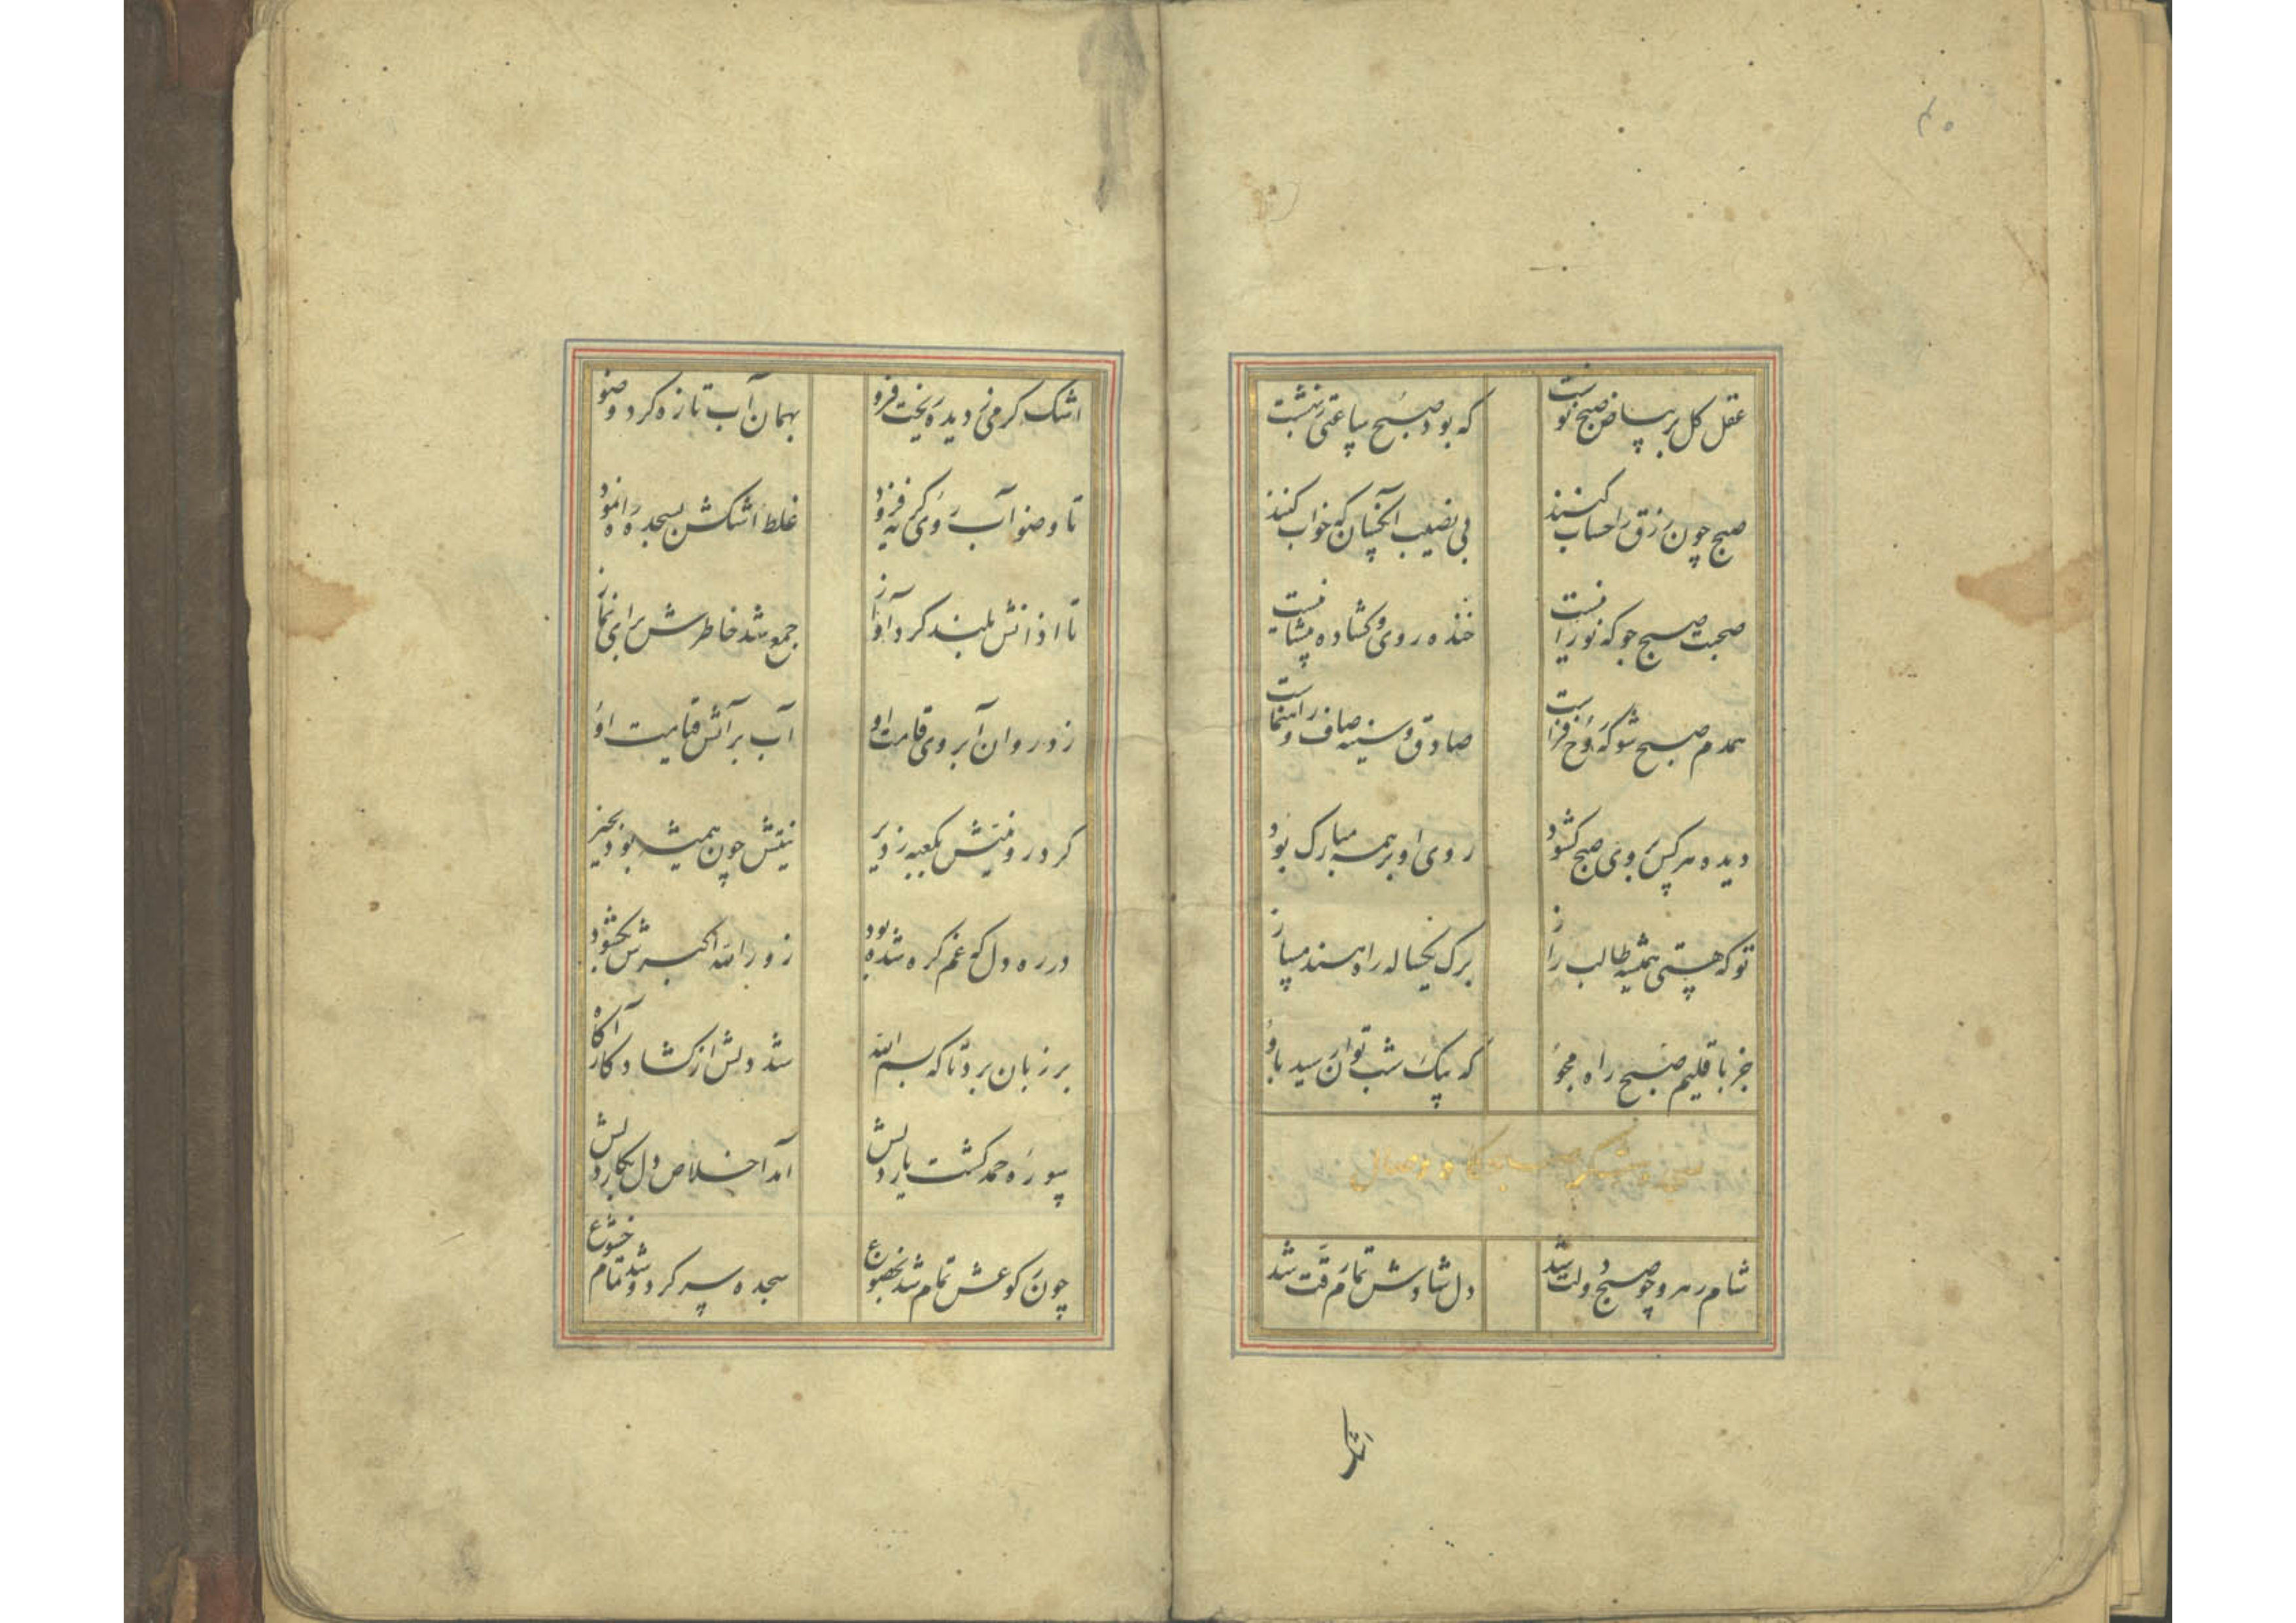 ۴۰
عقل کل بر بیاض صبح نوشت
که بود صبح ساعتی ز بهشت
صبح چون رزق را حساب کنند
بی نصیب آنچنان که خواب کنند
صحبت صبح جو که نورانیست
خنده روی و گشاده پیشانیست
همدم صبح شو که روح فزاست
صادق و سینه صاف و راهنماست
دیده هر کس بروی صبح گشود
روی او بر همه مبارک بود
تو که هستی همیشه طالب راز
برک یکساله راه بند مساز
جز باقلیم صبح راه مجو
که بیک شب توان رسید باو
شام رهرو چو صبح دولت شد
دل شادش تمام رقت شد
اشک
اشک گرمی ز دیده ریخت فرو
بهمان آب تازه کرد وضو
تا وضو آب روی گریه فزود
غلط اشکش بسجده راه نمود
تا اذانش بلند کرد آواز
جمع شد خاطرش برای نماز
زد روان آبروی قامت او
آب بر آتش قیامت او
کرد رو نیتش بکعبه ز دیر
نیتش چون همیشه بود بخیر
در ره دل که غم گره شده بود
زور الله اکبرش بگشود
بر زبان برد تا که بسم الله
شد دلش از گشاد کار آگاه
سوره حمد گشت یار دلش
آمد اخلاص دل بکار دلش
چون رکوعش تمام شد بخضوع
سجده سر کرد و شد تمام خشوع